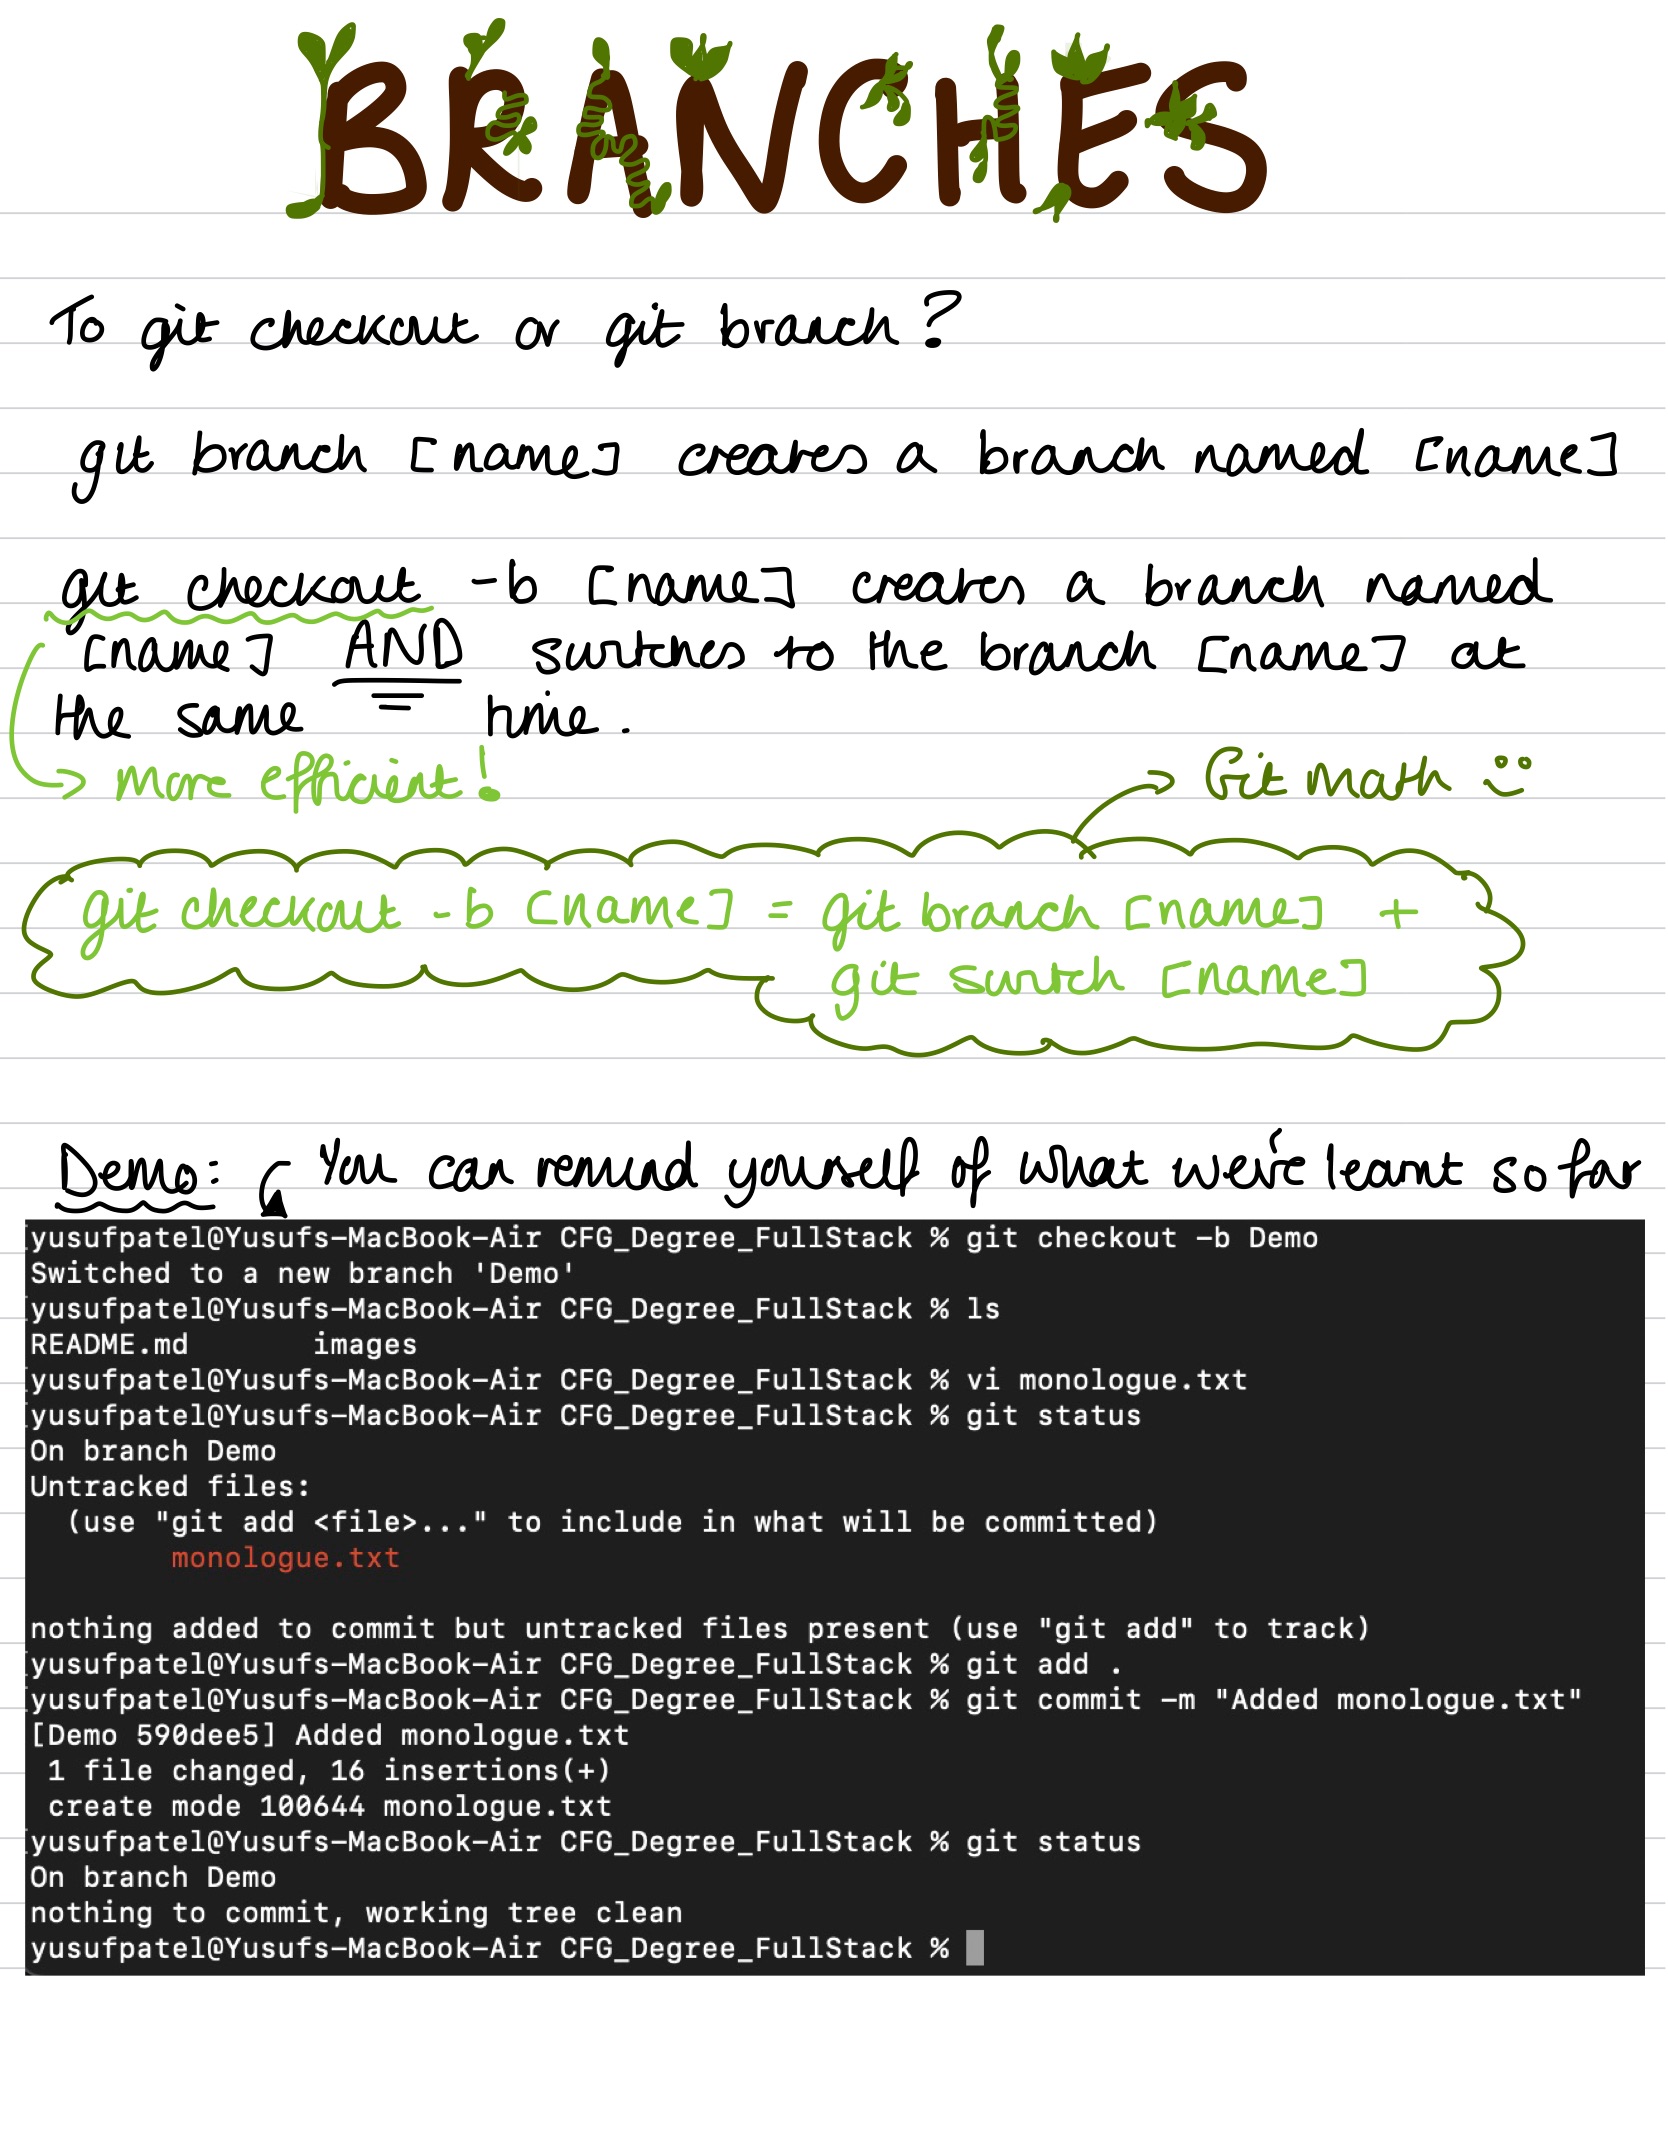 BRANCHES
To git checkout or git branch?
git branch [name] creates a branch named [name]
git checkout -b [name] creates a branch named
[name] AND switches to the branch [name] at
the same time.
more efficient!
Git math
git checkout -b [name] = git branch [name] +
git switch [name]
Demo: You can remind yourself of what we've learnt so far
yusufpatel@Yusufs-MacBook-Air CFG_Degree_FullStack % git checkout -b Demo
Switched to a new branch 'Demo'
yusufpatel@Yusufs-MacBook-Air CFG_Degree_FullStack % ls
README.md       images
yusufpatel@Yusufs-MacBook-Air CFG_Degree_FullStack % vi monologue.txt
yusufpatel@Yusufs-MacBook-Air CFG_Degree_FullStack % git status
On branch Demo
Untracked files:
  (use "git add <file>..." to include in what will be committed)
        monologue.txt
nothing added to commit but untracked files present (use "git add" to track)
yusufpatel@Yusufs-MacBook-Air CFG_Degree_FullStack % git add .
yusufpatel@Yusufs-MacBook-Air CFG_Degree_FullStack % git commit -m "Added monologue.txt"
[Demo 590dee5] Added monologue.txt
 1 file changed, 16 insertions(+)
 create mode 100644 monologue.txt
yusufpatel@Yusufs-MacBook-Air CFG_Degree_FullStack % git status
On branch Demo
nothing to commit, working tree clean
yusufpatel@Yusufs-MacBook-Air CFG_Degree_FullStack %